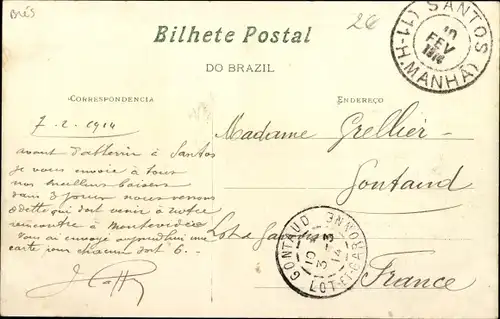 Brés
26
Bilhete Postal
DO BRAZIL
SANTOS
10
FEV
1914
(11-H.MANHÃ)
CORRESPONDENCIA
ENDEREÇO
7-2-1914
avant d'atterrir à Santos
je vous envoie à tous
nos meilleurs baisers
dans 3 jours nous verrons
Odette qui doit venir à notre
rencontre à Montevideo
vous ai envoyé aujourd'hui une
carte vous chacun doit 6.
Madame Grellier
Gontaud
Lot & Garonne
France
GONTAUD
10
3-3
14
LOT-ET-GARONNE